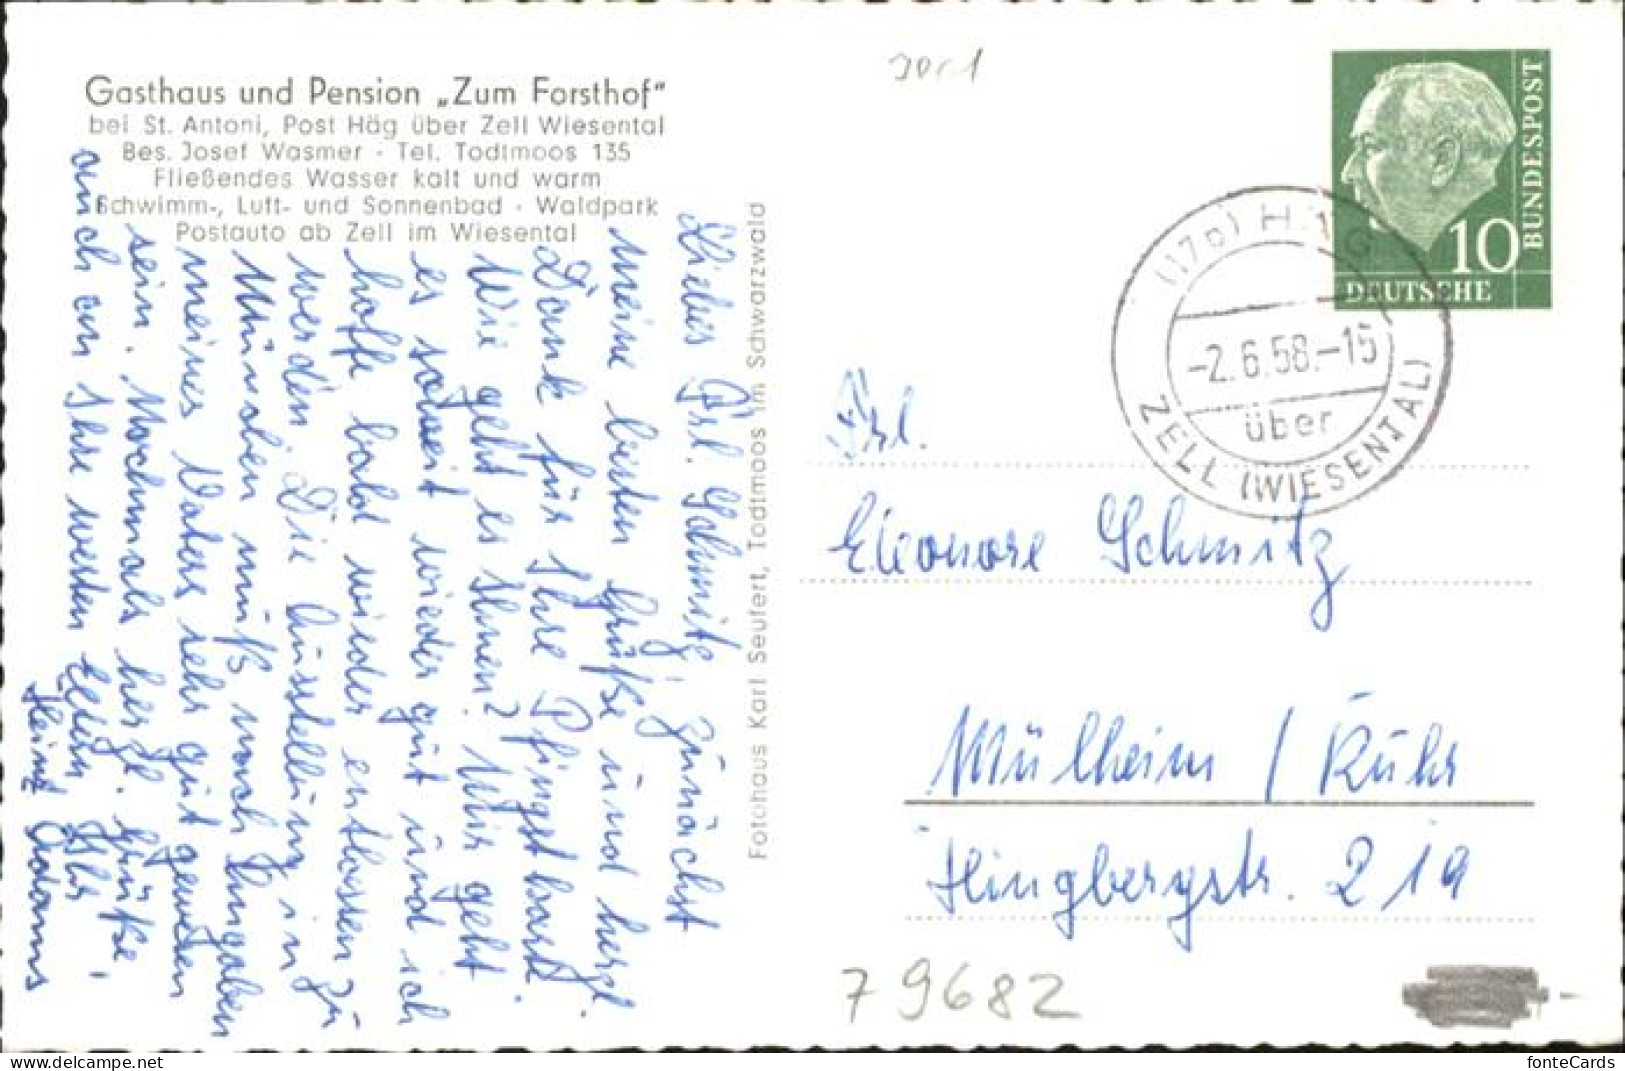 Gasthaus und Pension „Zum Forsthof"
bei St. Antoni, Post Häg über Zell Wiesental
Bes. Josef Wasmer · Tel. Todtmoos 135
Fließendes Wasser kalt und warm
Schwimm-, Luft- und Sonnenbad · Waldpark
Postauto ab Zell im Wiesental
Liebes Frl. Schmitz, zunächst
meine besten Grüße und herzl.
Dank für Ihre Pfingstkarte.
Wie geht es Ihnen? Mir geht
es soweit wieder gut und ich
hoffe bald wieder entlassen zu
werden. Die Ausstellung in
München muß nach Angaben
meines Vaters sehr gut gewesen
sein. Nochmals herzl. Grüße,
auch an Ihre werten Eltern Ihr
Heinz Adams
Fotohaus Karl Seufert, Todtmoos im Schwarzwald
BUNDESPOST
10
DEUTSCHE
(17b) HÄG
-2.6.58.-15
über
ZELL (WIESENTAL)
Frl.
Eleonore Schmitz
Mülheim / Ruhr
Hingbergstr. 219
79682
www.delcampe.net
fonteCards